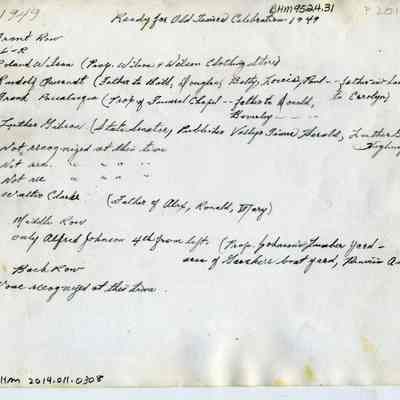 1949
BHM9524.31
Ready for Old Timers Celebration 1949
Front Row
L-R
Roland Wilson (Prop. Wilson & Wilson Clothing Store)
Rudolf (Father to Walt, Douglas, Betty, Paul -- father in law to Carolyn)
Frank Passalacqua (Prop of Funeral Chapel -- father to Donald, Beverly -- --
Luther Gibson (State Senator, Publishes Vallejo Times Herald, Luther G
Not recognized at this time
Not rec. " " " "
Not rec " " " "
Walter Clark (Father of Alex, Ronald, Mary)
Middle Row
only Alfred Johnson 4th from left. (Prop. Johnson's Lumber Yard -
area of boat yard,
Back Row
None recognized at this time.
BHM 2014.011.0308